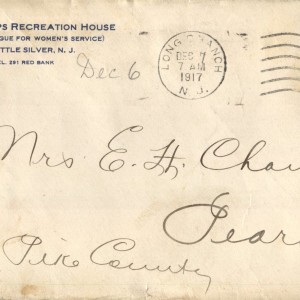 PS RECREATION HOUSE
GUE FOR WOMEN'S SERVICE)
TTLE SILVER, N. J.
EL. 291 RED BANK
Dec 6
LONG BRANCH
DEC 7
7 AM
1917
N. J.
Mrs E. H. Chau
Pear
Pike County